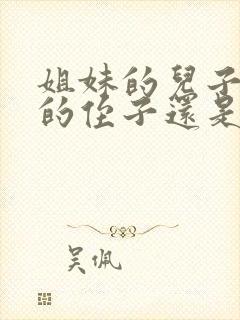 姐妹的兒子
的侄子還是
吳佩